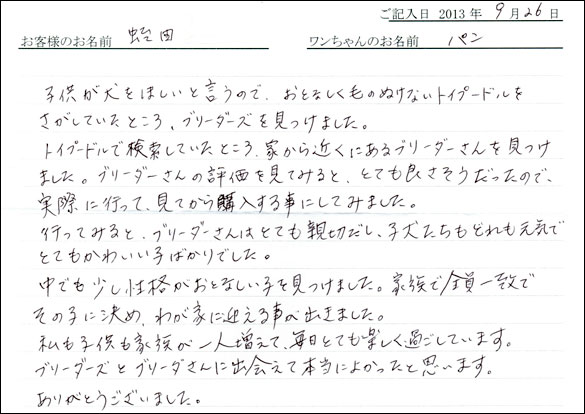 ご記入日 2013 年 9 月 26 日
お客様のお名前 蛭田 ワンちゃんのお名前 パン
子供が犬をほしいと言うので、おとなしく毛のぬけないトイプードルを
さがしていたところ、ブリーダーズを見つけました。
トイプードルで検索していたところ、家から近くにあるブリーダーさんを見つけ
ました。ブリーダーさんの評価を見てみると、とても良さそうだったので、
実際に行って、見てから購入する事にしてみました。
行ってみると、ブリーダーさんはとても親切だし、子犬たちもどれも元気で
とてもかわいい子ばかりでした。
中でも少し性格がおとなしい子を見つけました。家族で全員一致で
その子に決め、わが家に迎える事が出きました。
私も子供も家族が一人増えて、毎日とても楽しく過ごしています。
ブリーダーズとブリーダさんに出会えて本当によかったと思います。
ありがとうございました。